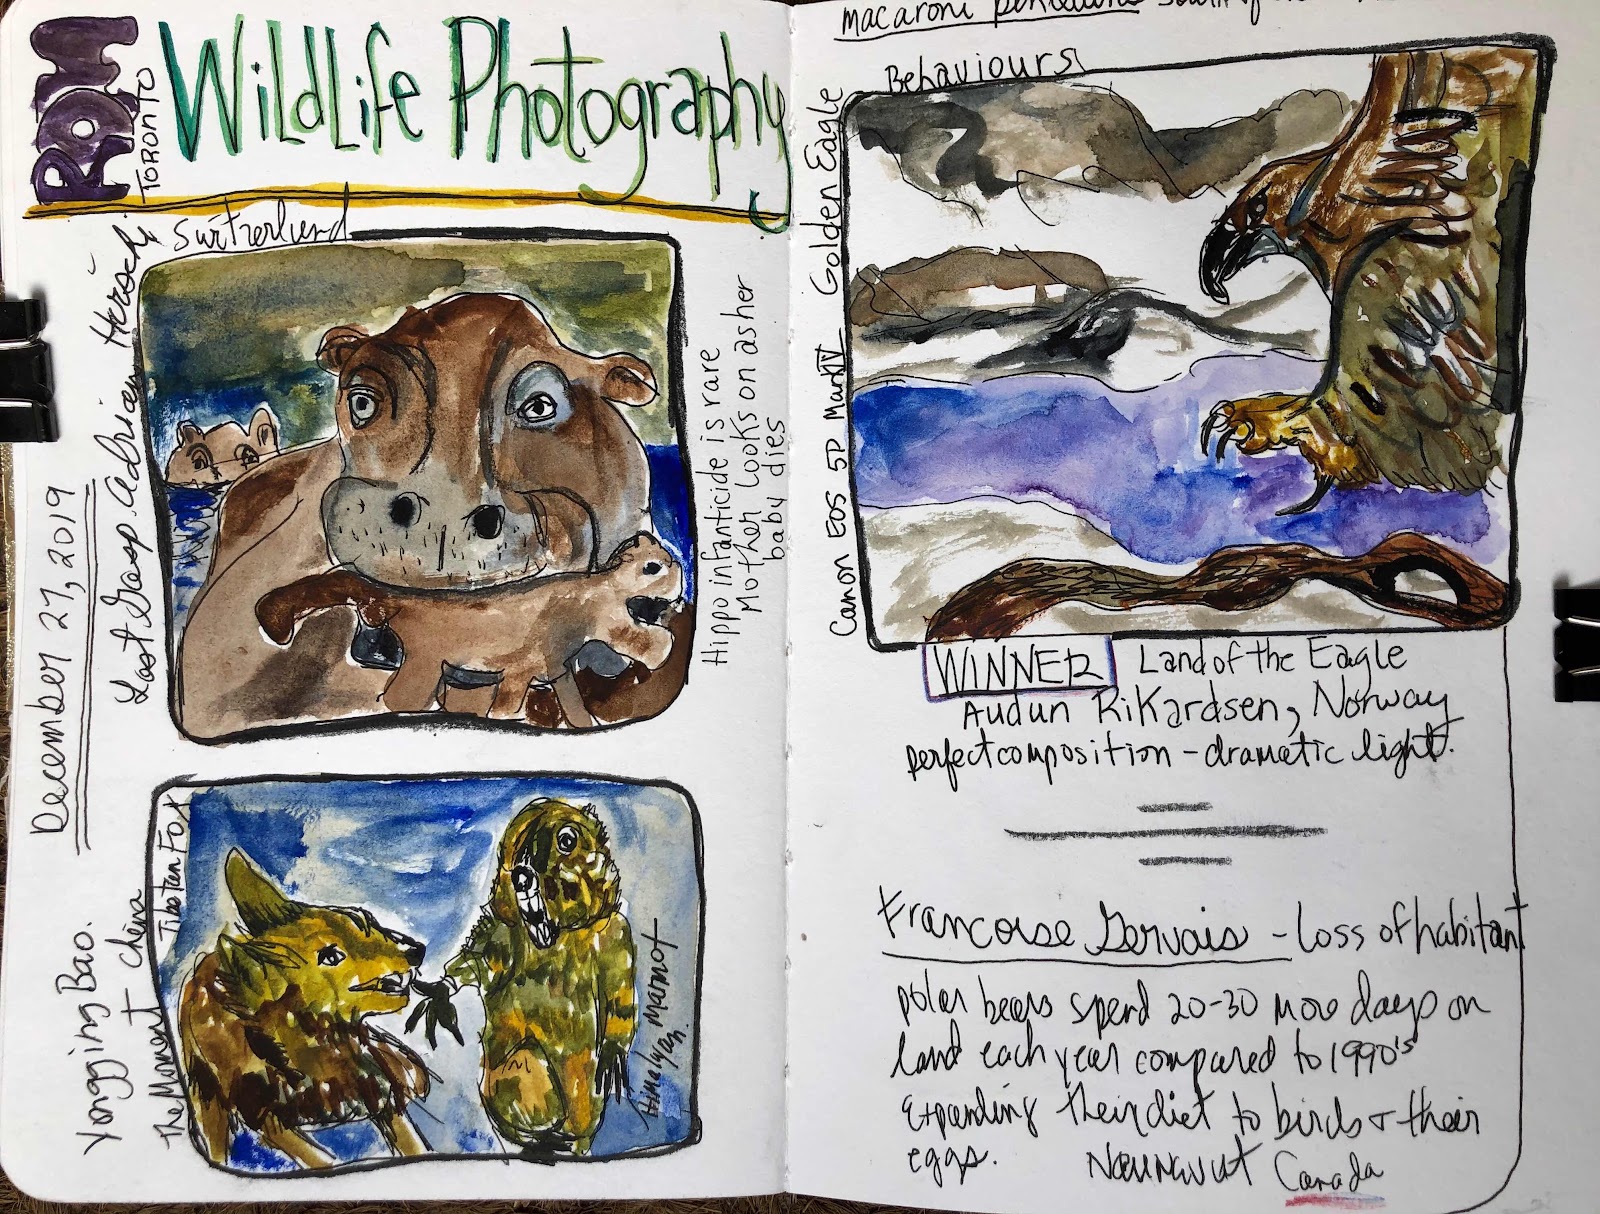 ROM
TORONTO
WildLife Photography
December 27, 2019
Last Gasp Adrian Hirsch,
Switzerland
Hippo infanticide is rare
Mother looks on as her
baby dies
Yongging Bao.
The Moment China
Tibetan Fox
Himalayan Marmot
macaroni penguins
Behaviours
Canon EOS 5D Mark IV Golden Eagle
WINNER Land of the Eagle
Audun Rikardsen, Norway
perfect composition - dramatic light.
Francoise Gervais - Loss of habitant
polar bears spend 20-30 more days on
land each year compared to 1990's
Expanding their diet to birds & their
eggs. Nunavut Canada